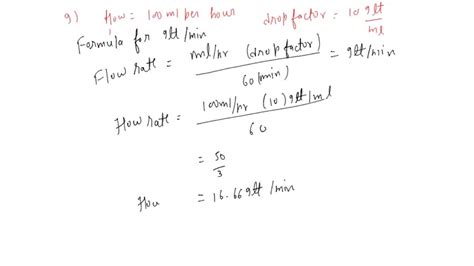 9) flow = 100ml per hour drop factor = 10 gtt/ml
Formula for gtt/min
Flow rate = ml/hr (drop factor) / 60(min) = gtt/min
Flow rate = 100ml/hr (10) gtt/ml / 60
= 50/3
flow = 16.66 gtt/min